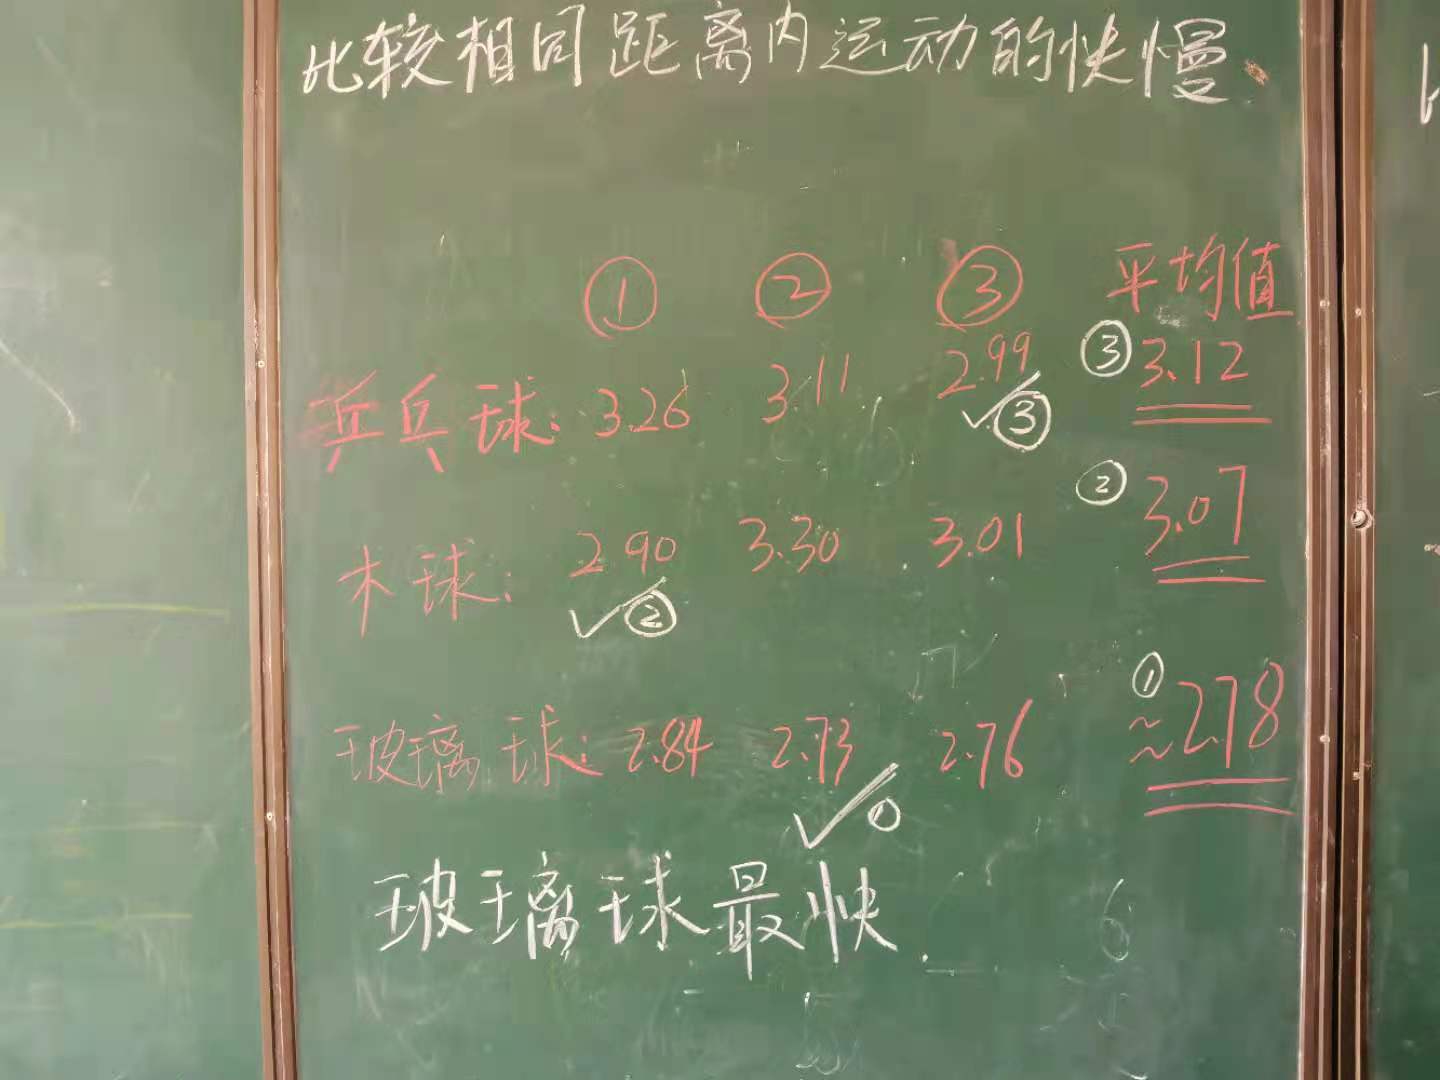 比较相同距离内运动的快慢
① ② ③ 平均值
乒乓球: 3.26 3.11 2.99 ③ 3.12
✓③
木球: 2.90 3.30 3.01 ② 3.07
✓②
玻璃球: 2.84 2.73 2.76 ① ≈2.78
✓①
玻璃球最快.